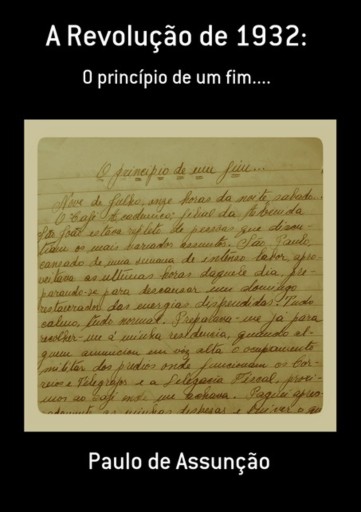 A Revolução de 1932:
O princípio de um fim....
O principio de um fim...
Nove de Julho, onze horas da noite, sabado.
O Café Academico, jovial da Avenida
São João estava repleto de pessoas que discu-
tiam os mais variados assuntos. São Paulo,
cansado de uma semana de intenso labor, apro-
veitava as ultimas horas daquele dia, pre-
parando-se para descansar um domingo
restaurador das energias dispendidas. Tudo
calmo, tudo normal. Preparava-me já para
recolher-me á minha residencia, quando al-
guem annunciou em voz alta o occupamento
militar dos predios onde funcionam os Cor-
reios e Telegrafos e a Delegacia Fiscal, proxi-
mos ao café onde me achava. Paguei apres-
sadamente as minhas despesas e
Paulo de Assunção